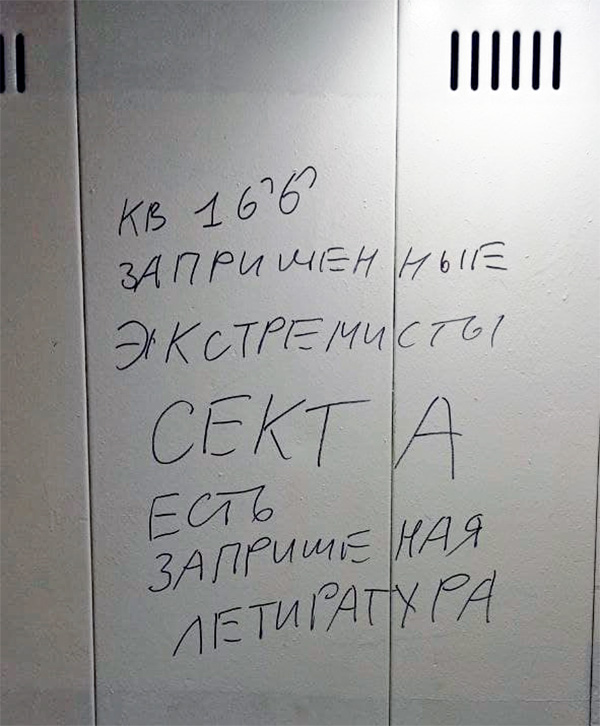 КВ 166
ЗАПРИШЕННЫЕ
ЭКСТРЕМИСТЫ
СЕКТА
ЕСТЬ
ЗАПРИШЕНАЯ
ЛЕТИРАТУРА